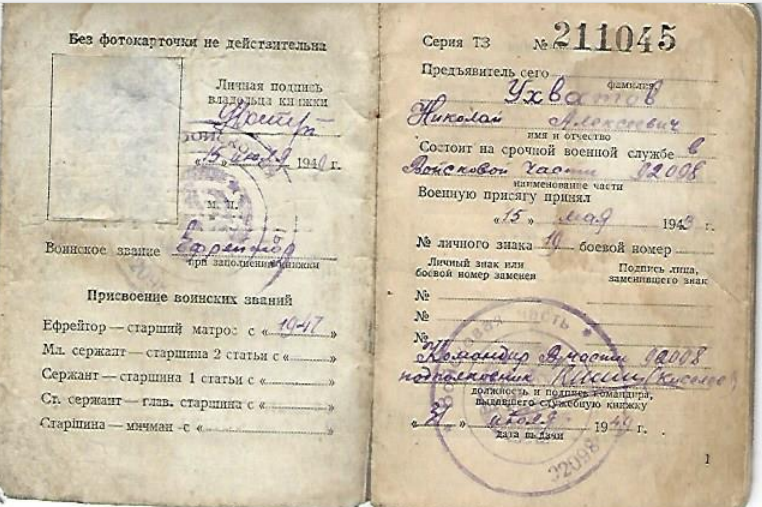 Без фотокарточки не действительна
Личная подпись
владельца книжки
«15» июля 194 г.
М. П.
Воинское звание Ефрейтор
при заполнении книжки
Присвоение воинских званий
Ефрейтор — старший матрос с «1947»
Мл. сержант — старшина 2 статьи с « »
Сержант — старшина 1 статьи с « »
Ст. сержант — глав. старшина с « »
Старшина — мичман с « »
Серия ТЗ № 211045
Предъявитель сего
фамилия
Ухватов
Николай Алексеевич
имя и отчество
Состоит на срочной военной службе в
Войсковой части 92098
наименование части
Военную присягу принял
«15» мая 1943 г.
№ личного знака 19 боевой номер
Личный знак или
боевой номер заменен
Подпись лица,
заменившего знак
№
№
№
Командир В/части 92098
подполковник (Киселев)
должность и подпись командира,
выдавшего служебную книжку
июля 1949 г.
дата выдачи
92098
1